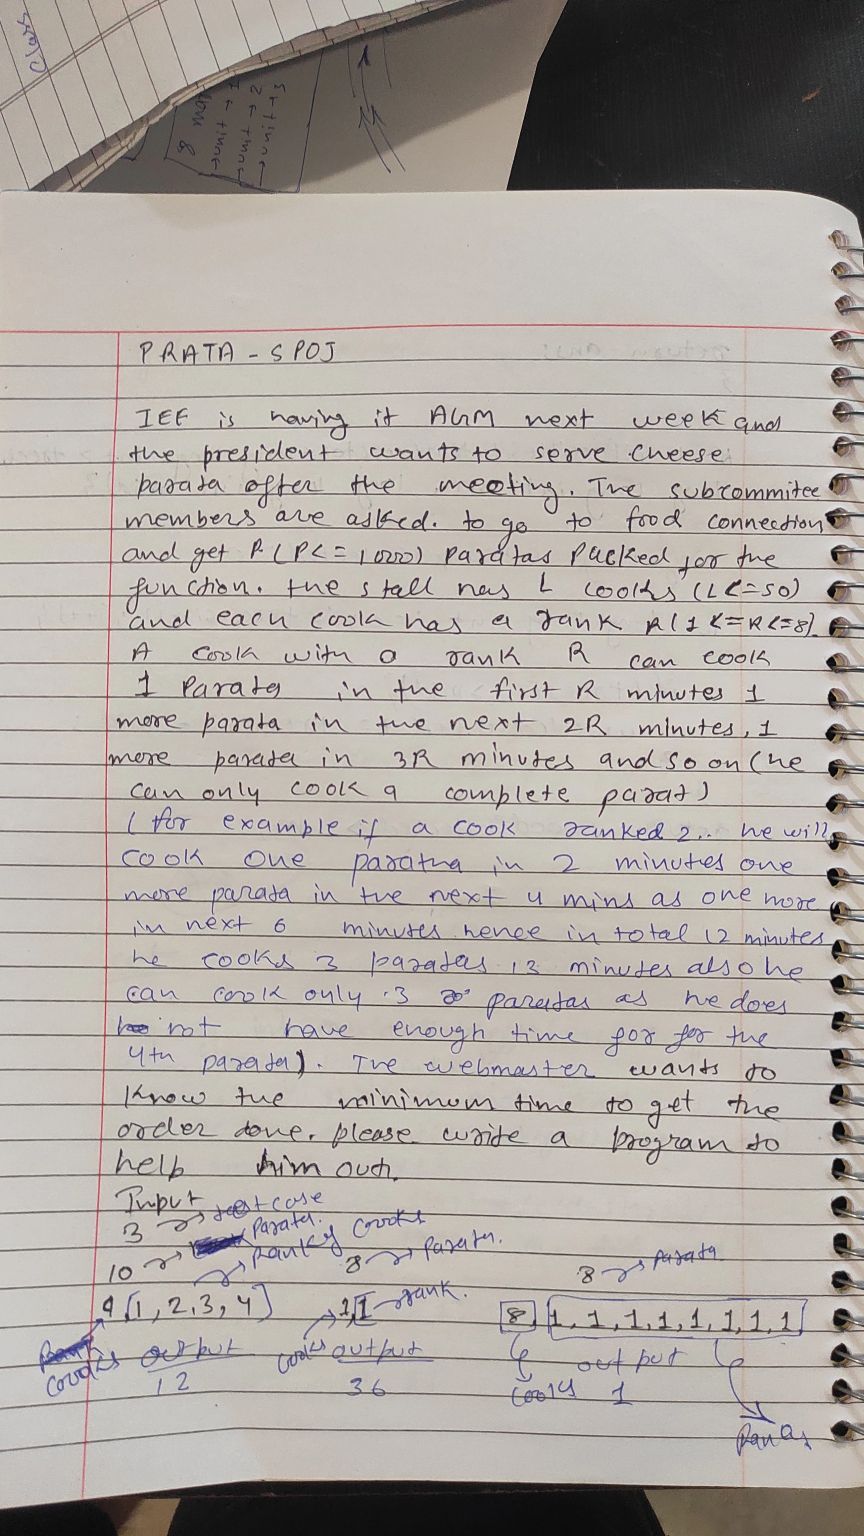 class
8 man
1 → unit
2 → unit
3 → unit
PRATA - SPOJ
IEE is having it AGM next week and
the president wants to serve cheese
parata after the meeting. The subcommitee
members are asked. to go to food connection
and get P(P<=1000) paratas packed for the
function. the stall has L cooks (L<=50)
and each cook has a rank R(1<=R<=8).
A cook with a rank R can cook
1 Parata in the first R minutes 1
more parata in the next 2R minutes, 1
more parata in 3R minutes and so on (he
can only cook a complete parat)
( for example if a cook ranked 2.. he will
cook one paratha in 2 minutes one
more parata in the next 4 mins as one more
in next 6 minutes hence in total 12 minutes
he cooks 3 paratas 13 minutes also he
can cook only 3 paratas as he does
not have enough time for for the
4th parata). The webmaster wants to
know the minimum time to get the
order done. please write a program to
help him out.
Input
3 → test case
10 → Parata.
Rank of cooks
8 → Parata.
8 → parata
4 [1, 2, 3, 4]
1, 1 → rank.
8, 1, 1, 1, 1, 1, 1, 1, 1
cooks output
cooks output
output
12
36
cooks 1
Ranks